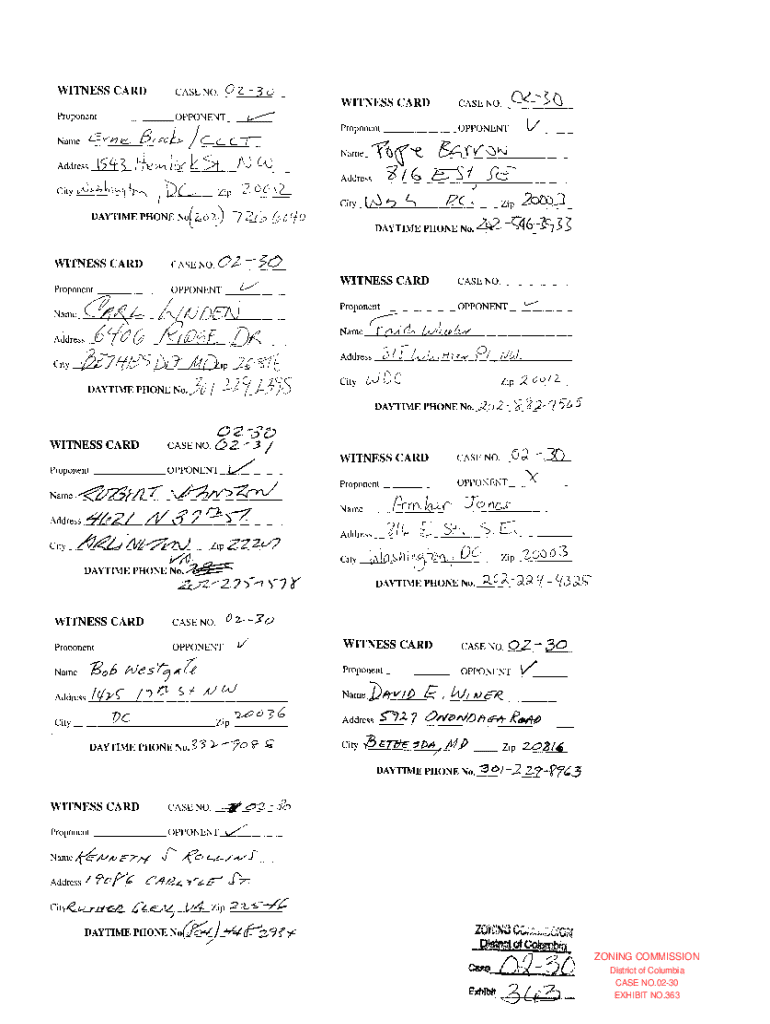 WITNESS CARD CASE NO. 02-30
Proponent OPPONENT ✓
Name Ernie Brooks / CCCT
Address 1543 Hemlock St. NW
City Washington, DC Zip 20012
DAYTIME PHONE No. (202) 726 6040
WITNESS CARD CASE NO. 02-30
Proponent OPPONENT ✓
Name CARL LINDEN
Address 6406 RIDGE DR
City BETHESDA MD Zip
DAYTIME PHONE No. 301 229 2395
02-30
WITNESS CARD CASE NO. 02-31
Proponent OPPONENT ✓
Name ROBERT JOHNSTON
Address 4621 N 37th ST.
City ARLINGTON VA. Zip 22207
DAYTIME PHONE No.
202-225-1578
WITNESS CARD CASE NO. 02-30
Proponent OPPONENT ✓
Name Bob Westgate
Address 1425 17th St NW
City DC Zip 20036
DAYTIME PHONE No. 332-9088
WITNESS CARD CASE NO. 02-30
Proponent OPPONENT ✓
Name KENNETH S ROLLINS
Address 19086 CARLYLE ST.
City RUTHER GLEN, VA Zip 22546
DAYTIME PHONE No. (804) 448-2934
WITNESS CARD CASE NO. 02-30
Proponent OPPONENT ✓
Name Pope BARROW
Address 816 E St SE
City Wash D.C. Zip 20003
DAYTIME PHONE No. 202-546-3933
WITNESS CARD CASE NO.
Proponent OPPONENT ✓
Name Faith Wheeler
Address 315 Whittier Pl NW
City WDC Zip 20012
DAYTIME PHONE No. 202-882-7565
WITNESS CARD CASE NO. 02-30
Proponent OPPONENT X
Name Jones
Address 816 E St. S.E.
City Washington, DC Zip 20003
DAYTIME PHONE No. 202-224-4325
WITNESS CARD CASE NO. 02-30
Proponent OPPONENT ✓
Name DAVID E. WINER
Address 5927 ONONDAGA ROAD
City BETHESDA, MD Zip 20816
DAYTIME PHONE No. 301-229-8963
ZONING COMMISSION
District of Columbia
Case 02-30
Exhibit 363
ZONING COMMISSION
District of Columbia
CASE NO.02-30
EXHIBIT NO.363